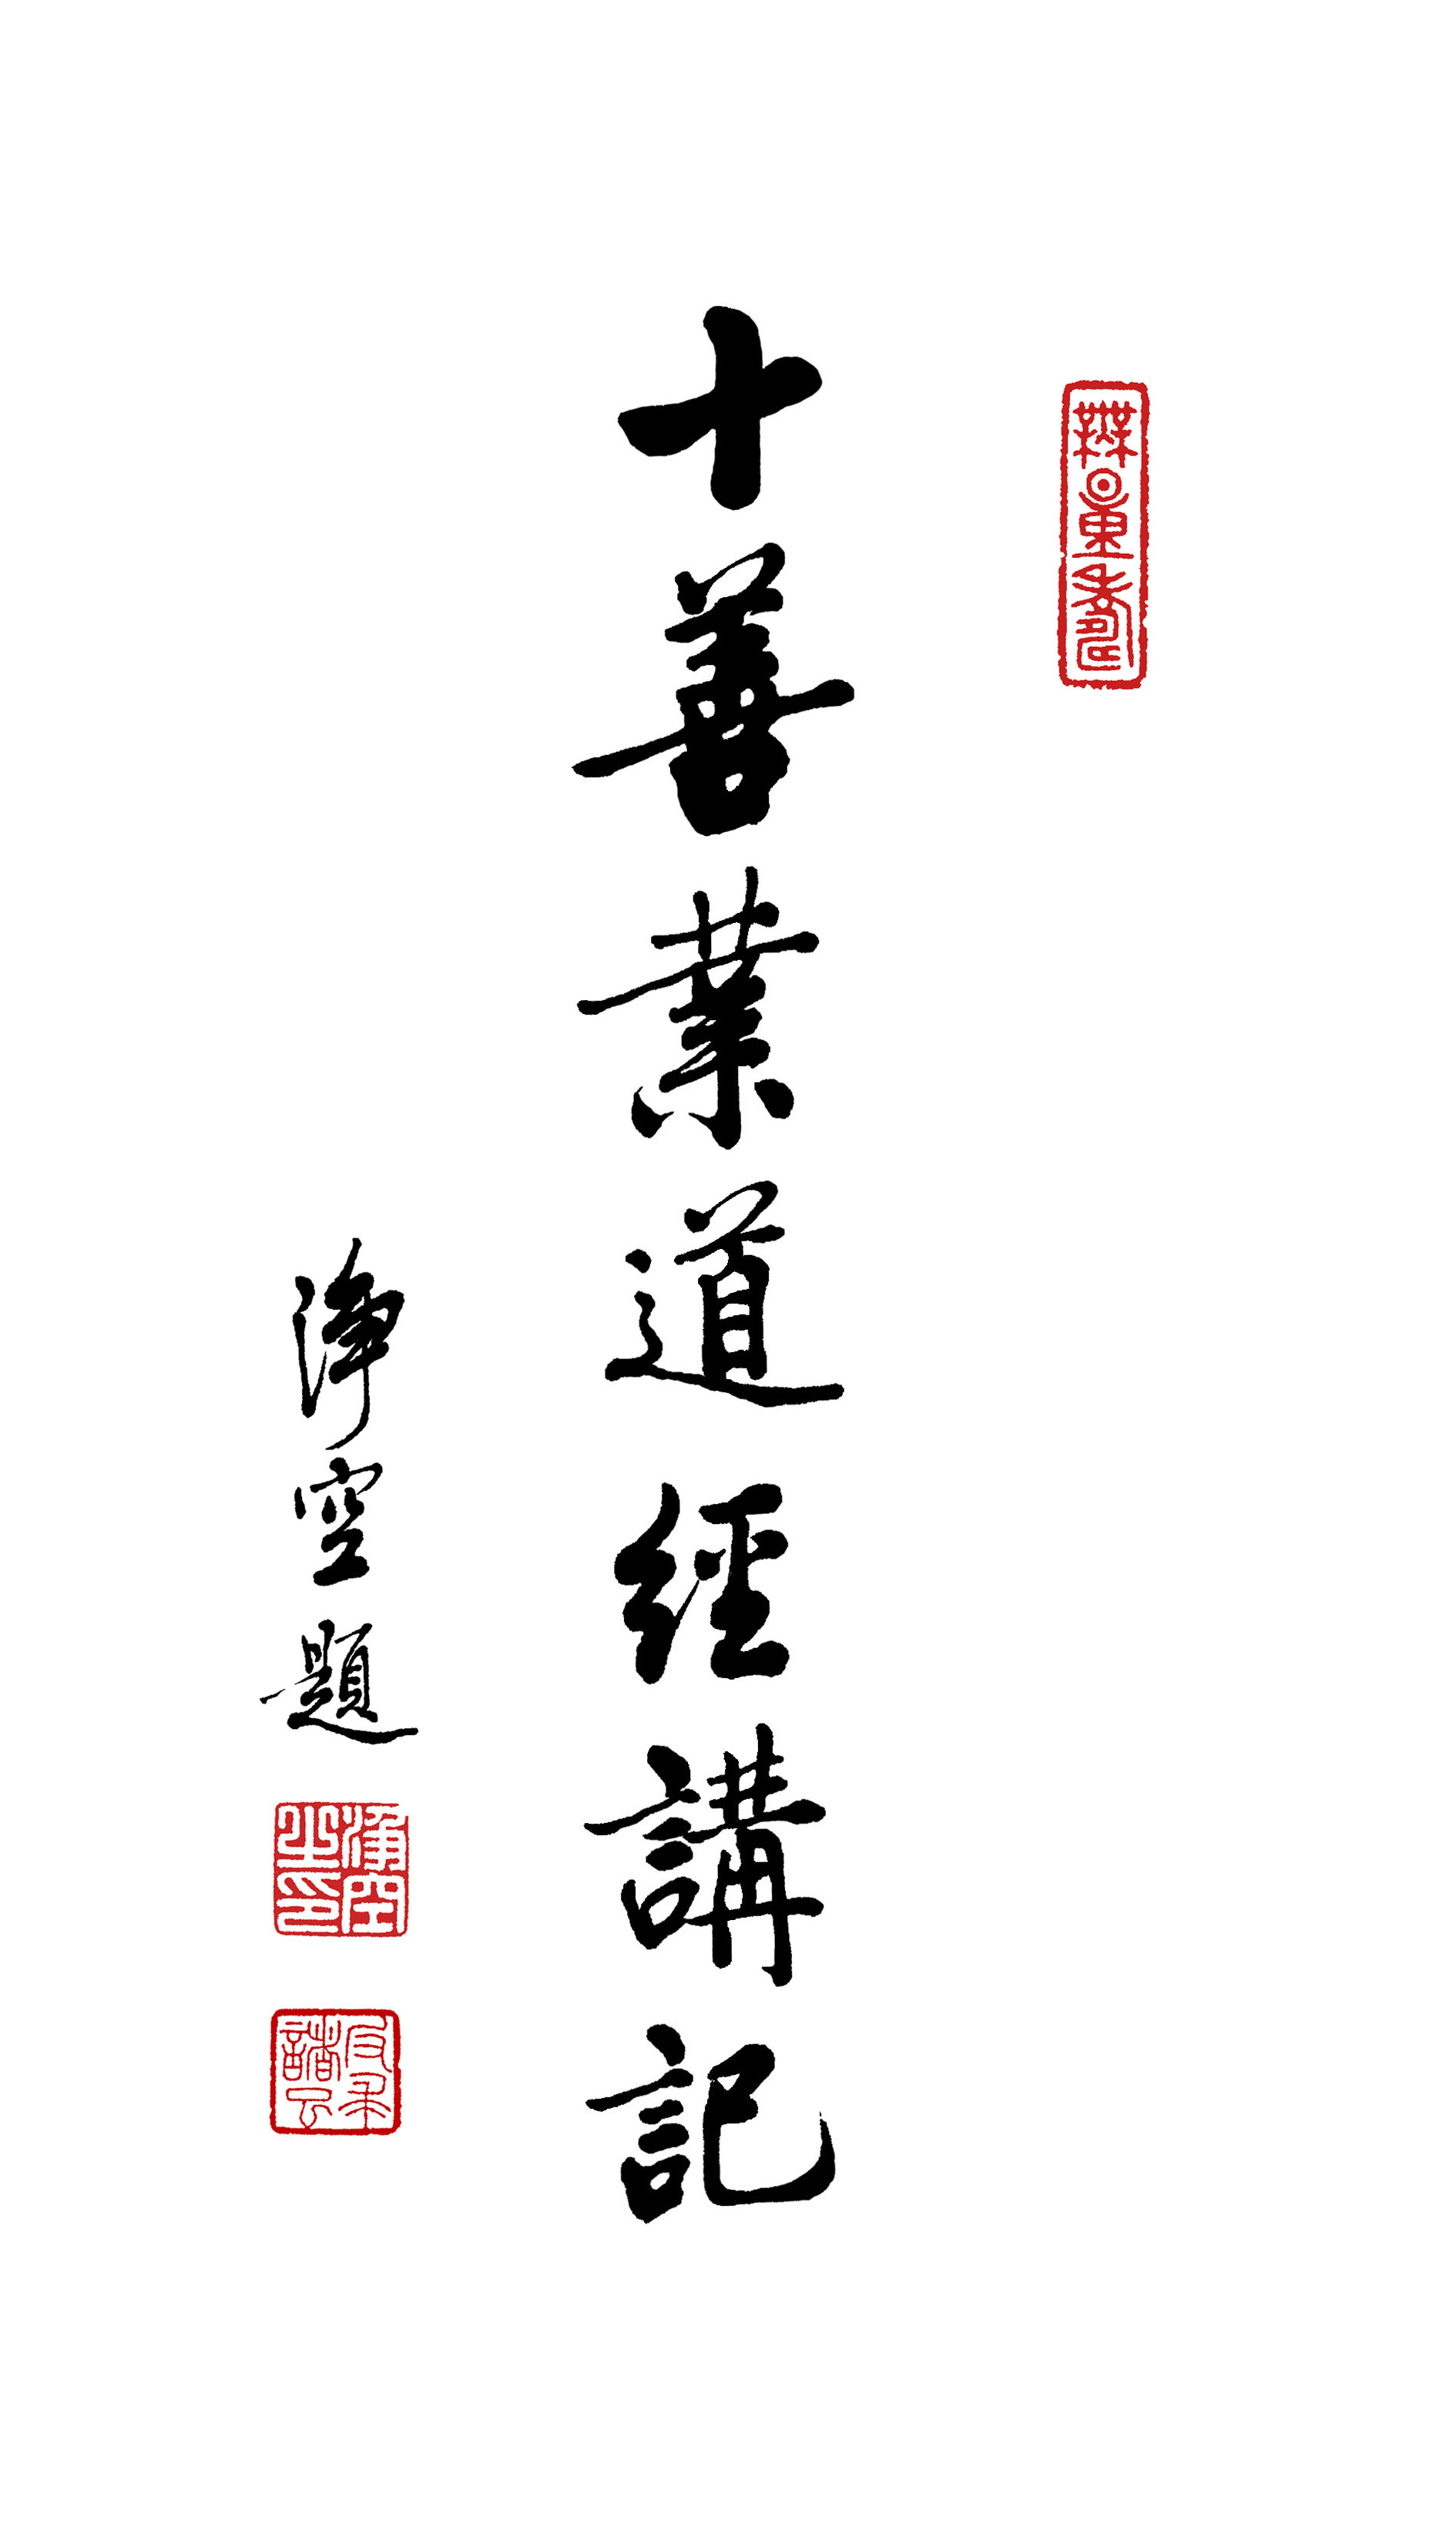 無量壽
十善業道經講記
淨空題
淨空之印